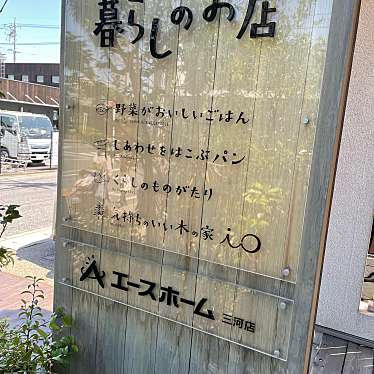 暮らしのお店
野菜がおいしいごはん
しあわせをはこぶパン
くらしのものがたり
気持ちのいい木の家
エースホーム 三河店